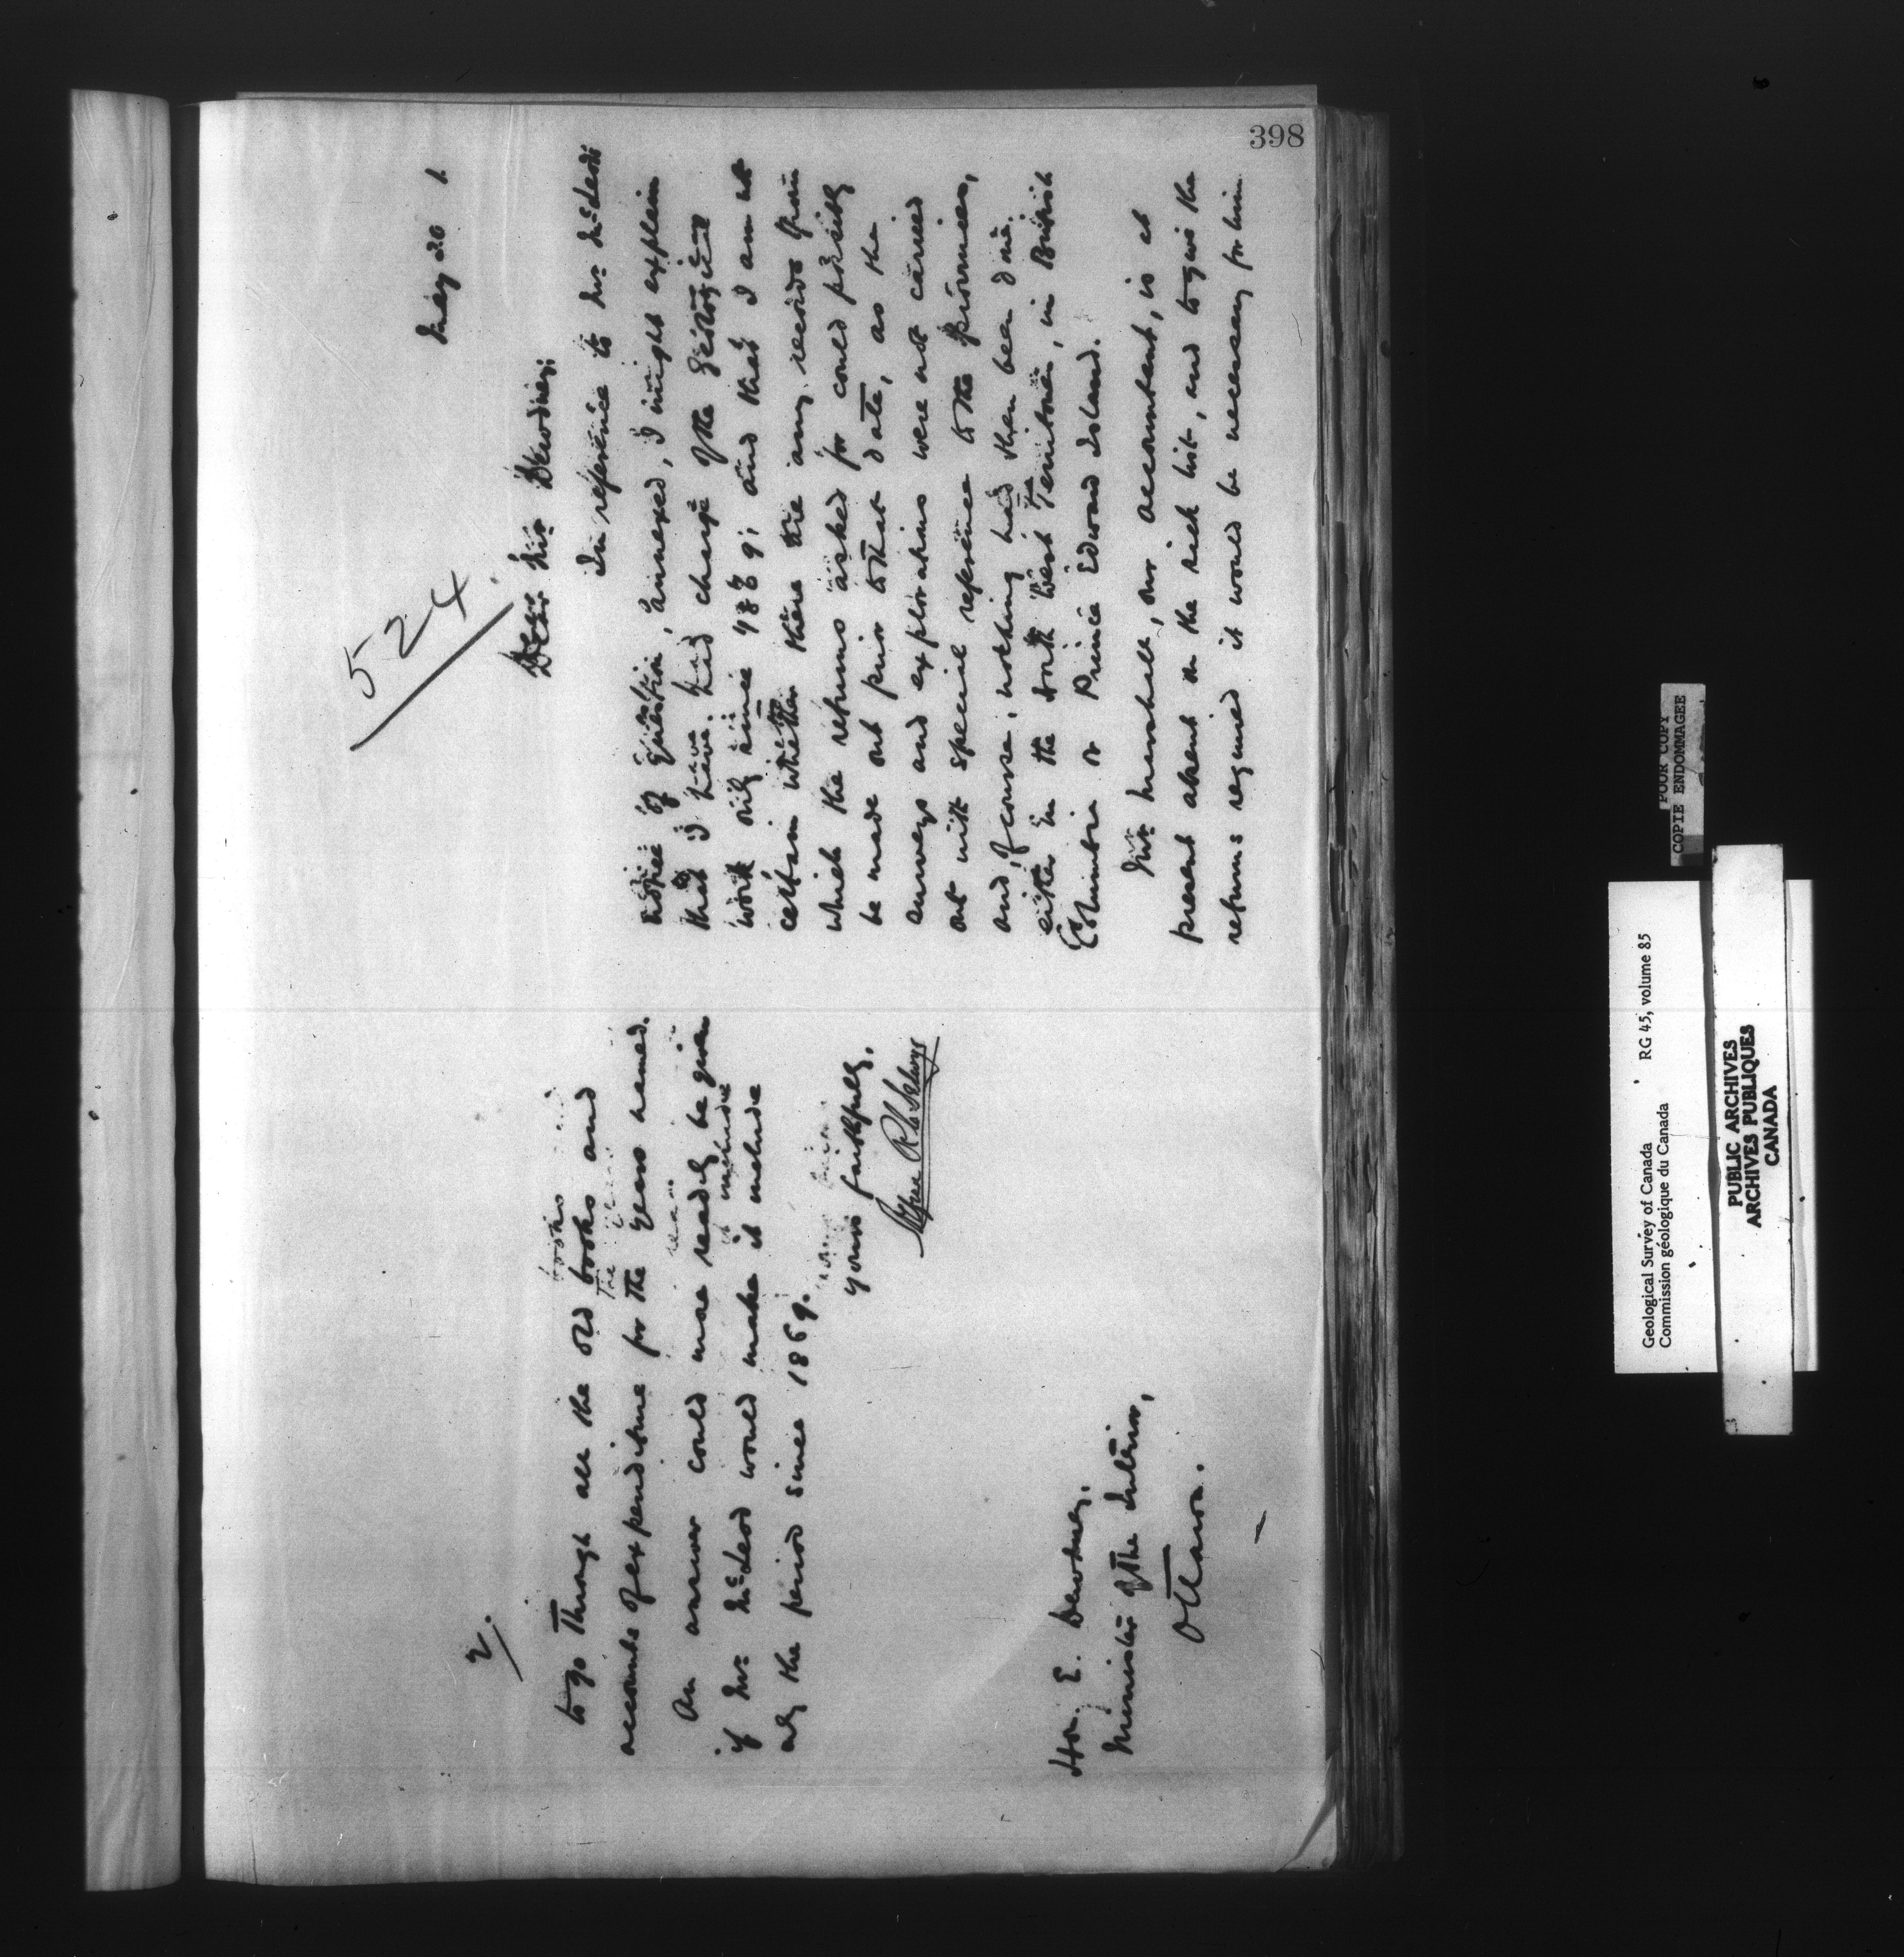 398
524
May 20 1.
Dear Mr Dewdney,
In reference to Mr McLeod's
notice of question, annexed, I might explain
that I have had charge of the Geological
work only since 1869; and that I am not
certain whether there are any records from
which the returns asked for could possibly
be made out prior to that date, as the
surveys and explorations were not carried
out with special reference to the provinces,
and, of course, nothing had then been done
either in the North West Territories, in British
Columbia or Prince Edward Island.
Mr Marshall, our accountant, is at
present absent on the sick list, and to give the
returns required it would be necessary for him
2.
to go through all the old books and
accounts of expenditure for the years named.
An answer could more readily be given
if Mr McLeod would make it include
only the period since 1869.
Yours faithfully,
Alfred R C Selwyn
Hon. E. Dewdney,
Minister of the Interior,
Ottawa.
POOR COPY
COPIE ENDOMMAGEE
Geological Survey of Canada RG 45, volume 85
Commission géologique du Canada
PUBLIC ARCHIVES
ARCHIVES PUBLIQUES
CANADA